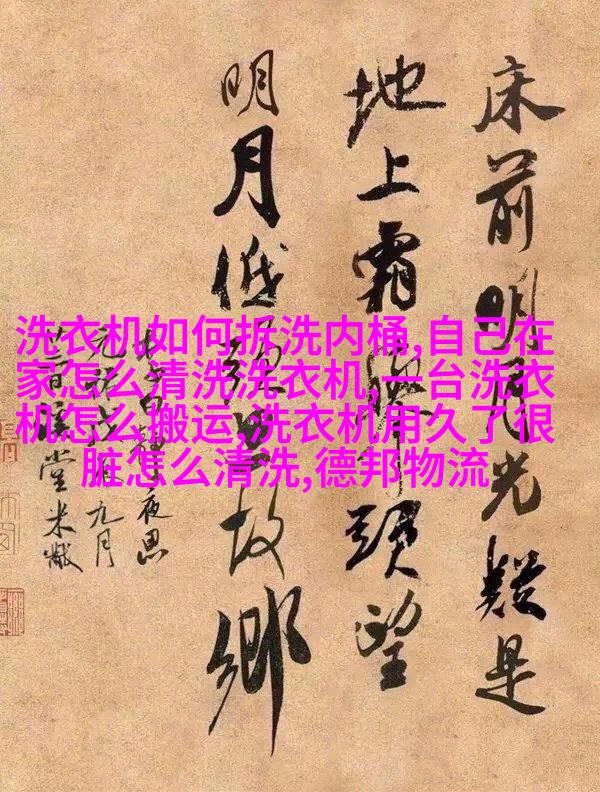 洗衣机如何拆洗内桶,自己在
家怎么清洗洗衣机,一台洗衣
机怎么搬运,洗衣机用久了很
脏怎么清洗,德邦物流
床前明月光疑是
地上霜舉頭望
明月低頭思故鄉
夜思
九月
堂米黻